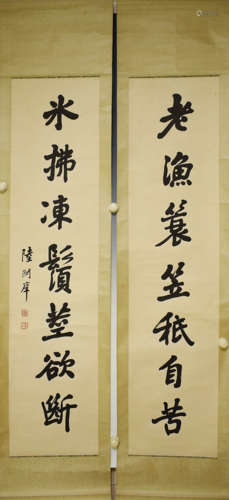 老漁簑笠秖自苦
冰拂凍鬚莖欲斷
陸潤庠